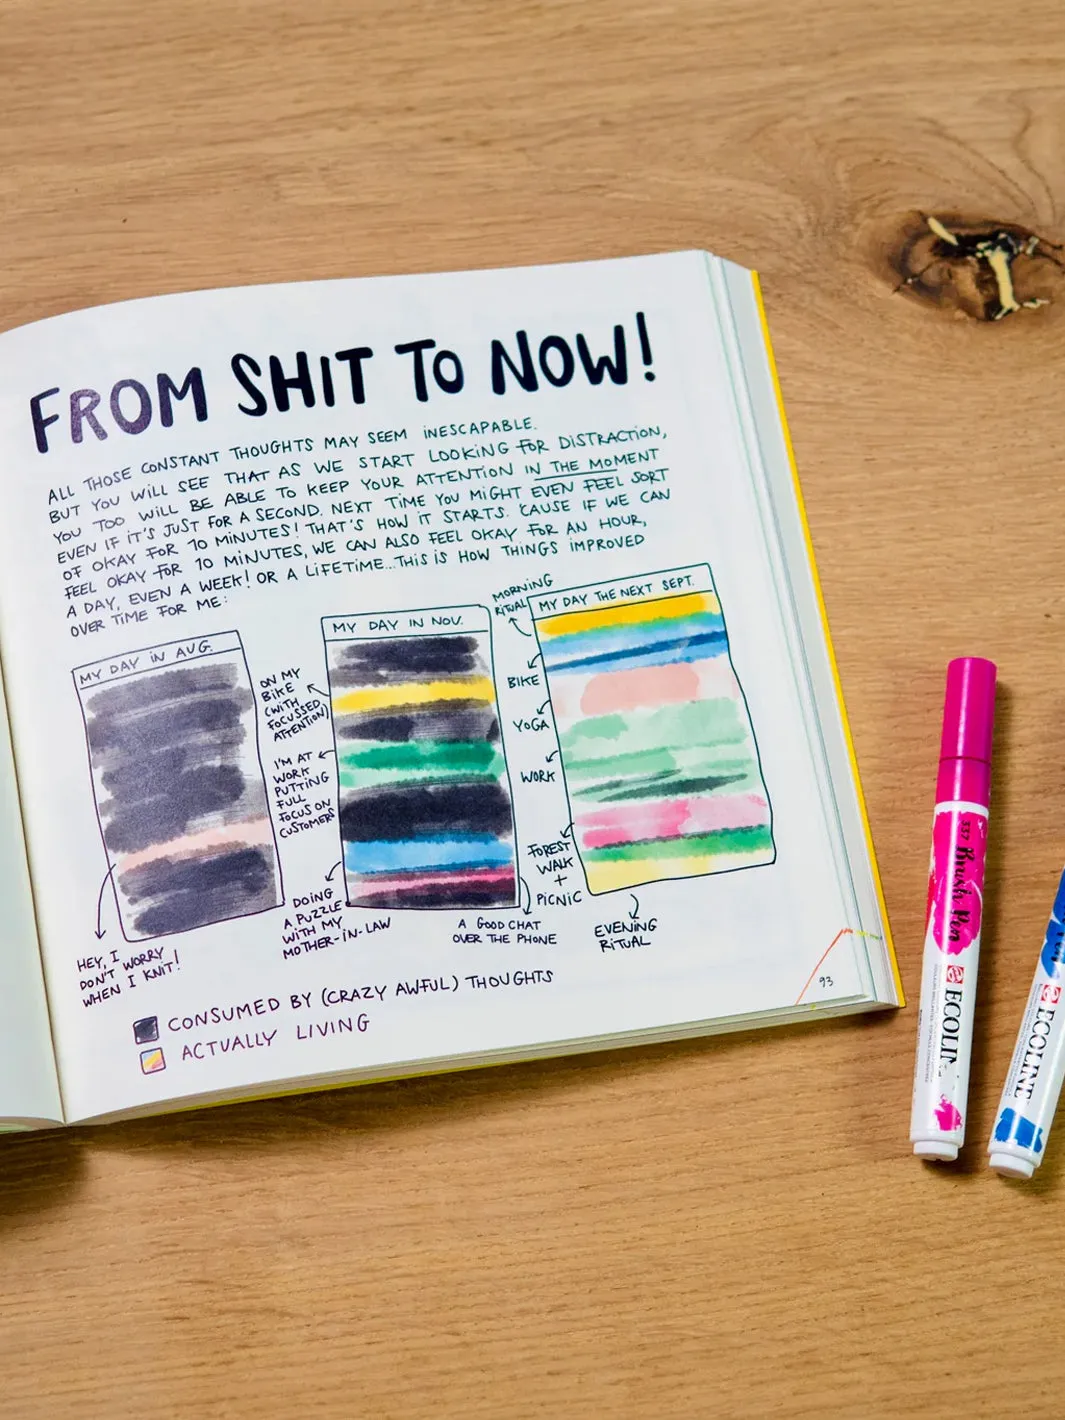 FROM SHIT TO NOW!
ALL THOSE CONSTANT THOUGHTS MAY SEEM INESCAPABLE.
BUT YOU WILL SEE THAT AS WE START LOOKING FOR DISTRACTION,
YOU TOO WILL BE ABLE TO KEEP YOUR ATTENTION IN THE MOMENT
EVEN IF IT'S JUST FOR A SECOND. NEXT TIME YOU MIGHT EVEN FEEL SORT
OF OKAY FOR 10 MINUTES! THAT'S HOW IT STARTS. 'CAUSE IF WE CAN
FEEL OKAY FOR 10 MINUTES, WE CAN ALSO FEEL OKAY FOR AN HOUR,
A DAY, EVEN A WEEK! OR A LIFETIME...THIS IS HOW THINGS IMPROVED
OVER TIME FOR ME:
MY DAY IN AUG.
HEY, I
DON'T WORRY
WHEN I KNIT!
MY DAY IN NOV.
ON MY
BIKE
(WITH
FOCUSSED
ATTENTION)
I'M AT
WORK
PUTTING
FULL
FOCUS ON
CUSTOMERS
DOING
A PUZZLE
WITH MY
MOTHER-IN-LAW
A GOOD CHAT
OVER THE PHONE
MY DAY THE NEXT SEPT.
MORNING
RITUAL
BIKE
YOGA
WORK
FOREST
WALK
+
PICNIC
EVENING
RITUAL
CONSUMED BY (CRAZY AWFUL) THOUGHTS
ACTUALLY LIVING
93
337 Brush Pen
ECOLINE